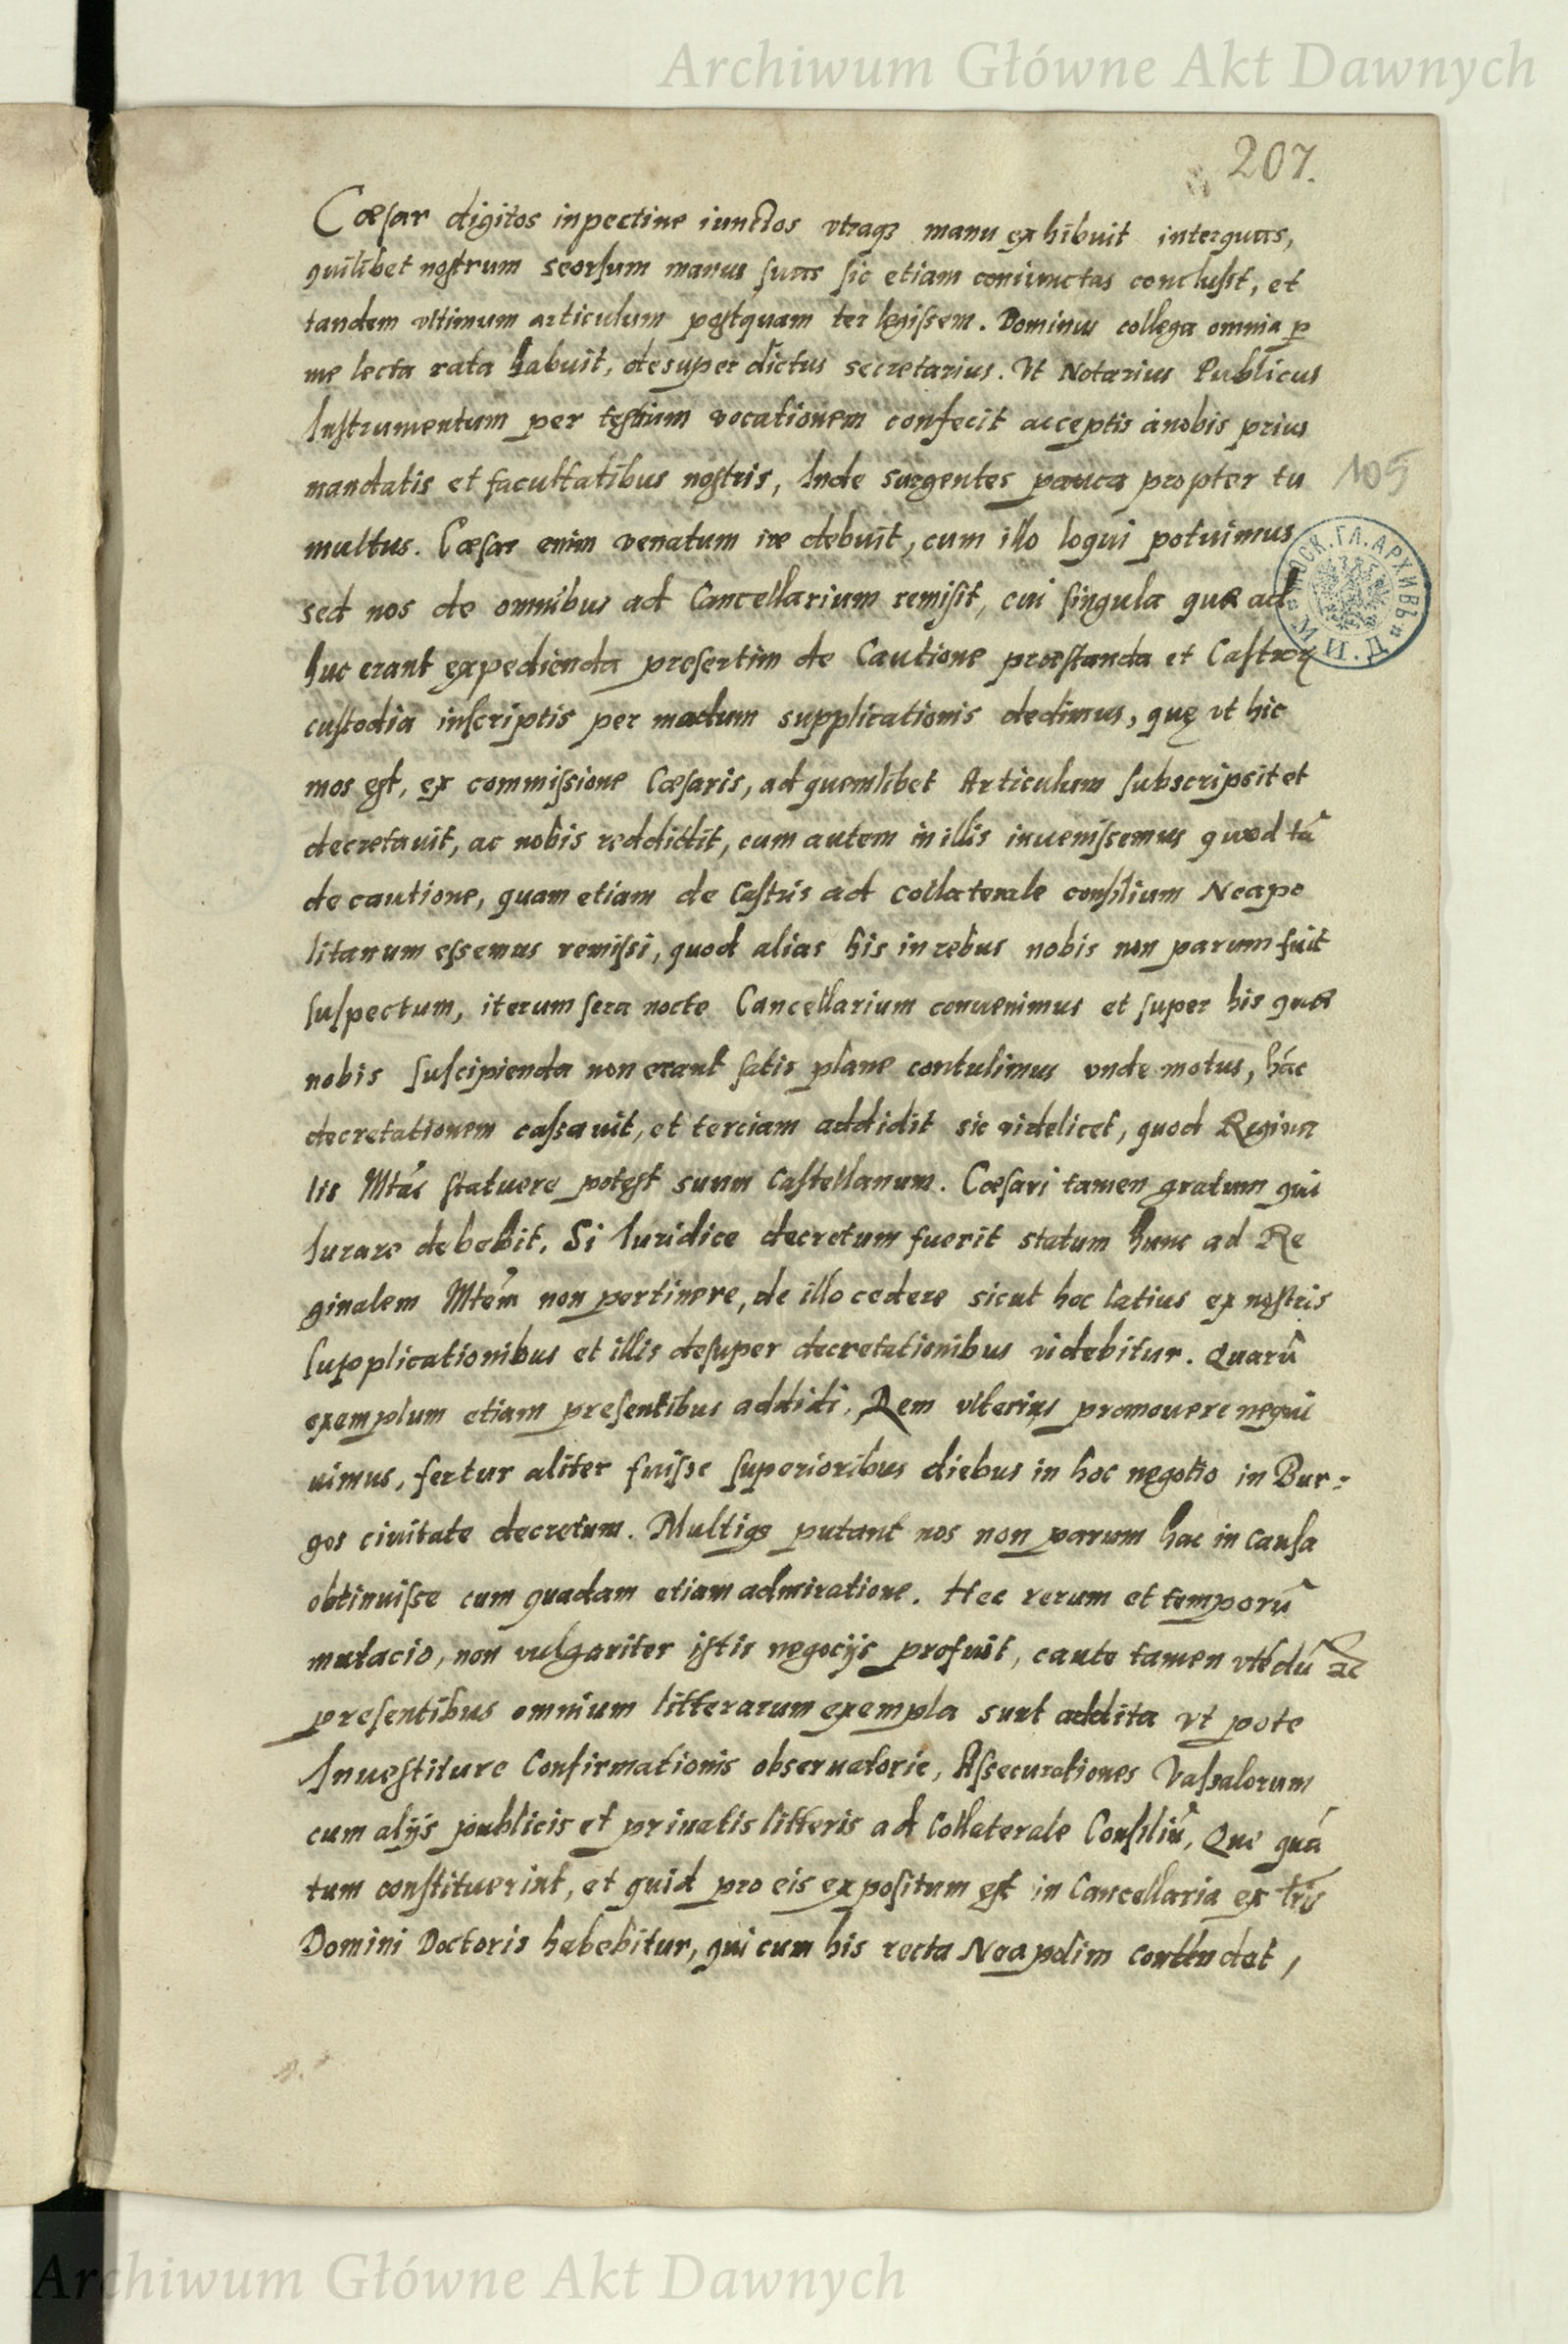 Archiwum Główne Akt Dawnych
207.
Cæsar digitos in pectine iunctos vtraqз manu exhibuit interquas,
quilibet nostrum seorsum manus suas sic etiam coniunctas conclusit, et
tandem vltimum articulum postquam ter legissem. Dominus collega omnia p
me lecta rata habuit, desuper dictus secretarius. Vt Notarius Publicus
Instrumentum per testium vocationem confecit acceptis ànobis prius
mandatis et facultatibus nostris, Inde surgentes pauca propter tu
105
multus. Cæsar enim venatum ire debuit, cum illo loqui potuimus
sed nos de omnibus ad Cancellarium remisit, cui singula quæ ad
МОСК. ГЛ. АРХИВЪ М.И.Д.
huc erant expedienda presertim de Cautione præstanda et Castrorꝝ
custodia inscriptis per modum supplicationis dedimus, quę vt hic
mos est, ex commissione Cæsaris, ad quemlibet Articulum subscripsit et
decretauit, ac nobis reddidit, cum autem in illis inuenissemus quod tā
de cautione, quam etiam de Castris ad collaterale consilium Neapo
litanum essemus remissi, quod alias his in rebus nobis non parum fuit
suspectum, iterum sera nocte Cancellarium conuenimus et super his quæ
nobis suscipienda non erant satis plane contulimus vnde motus, hāc
decretationem cassauit, et terciam addidit sic videlicet, quod Regina
lis Mtás statuere potest suum Castellanum. Cæsari tamen gratum qui
Iurare debebit. Si Iuridice decretum fuerit statum hunc ad Re
ginalem Mtem non pertinere, de illo cedere sicut hoc latius ex nostris
supplicationibus et illis desuper decretationibus videbitur. Quarū
exemplum etiam presentibus addidi. Rem vlterius promouere nequi
uimus, fertur aliter fuisse superioribus diebus in hoc negotio in Bur:
gos ciuitate decretum. Multiqз putant nos non parum hac in causa
obtinuisse cum quadam etiam admiratione. Hec rerum et temporū
mutacio, non vulgariter istis negocijs profuit, caute tamen vtēdū ac
presentibus omnium litterarum exempla sunt addita vt pote
Inuestiture Confirmationis obseruatorie, Assecurationes Vassalorum
cum alijs publicis et priuatis litteris ad Collaterale Consiliū, Que quā
tum constituerint, et quid pro eis expositum est in Cancellaria ex tris
Domini Doctoris habebitur, qui cum his recta Neapolim contendet,
Archiwum Główne Akt Dawnych